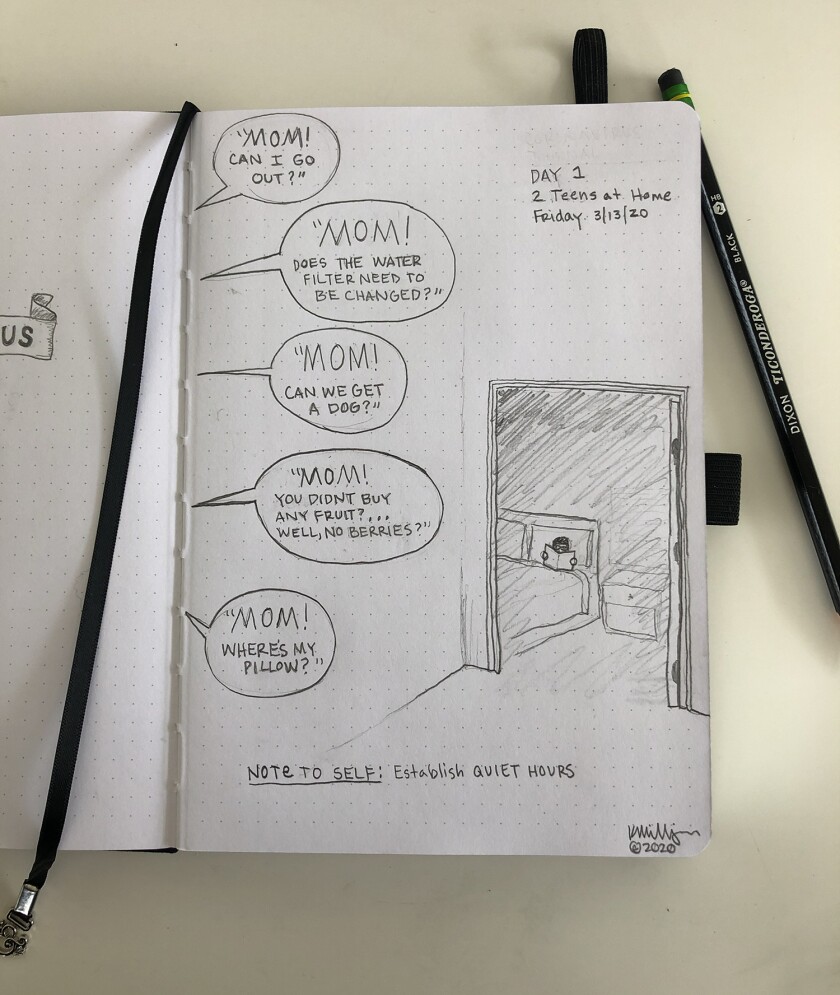 "MOM!
CAN I GO
OUT?"
DAY 1
2 Teens at Home
Friday 3/13/20
"MOM!
DOES THE WATER
FILTER NEED TO
BE CHANGED?"
"MOM!
CAN WE GET
A DOG?"
"MOM!
YOU DIDNT BUY
ANY FRUIT?...
WELL, NO BERRIES?"
"MOM!
WHERE'S MY
PILLOW?"
NOTE TO SELF: Establish QUIET HOURS
©2020
US
DIXON TICONDEROGA® BLACK HB 2